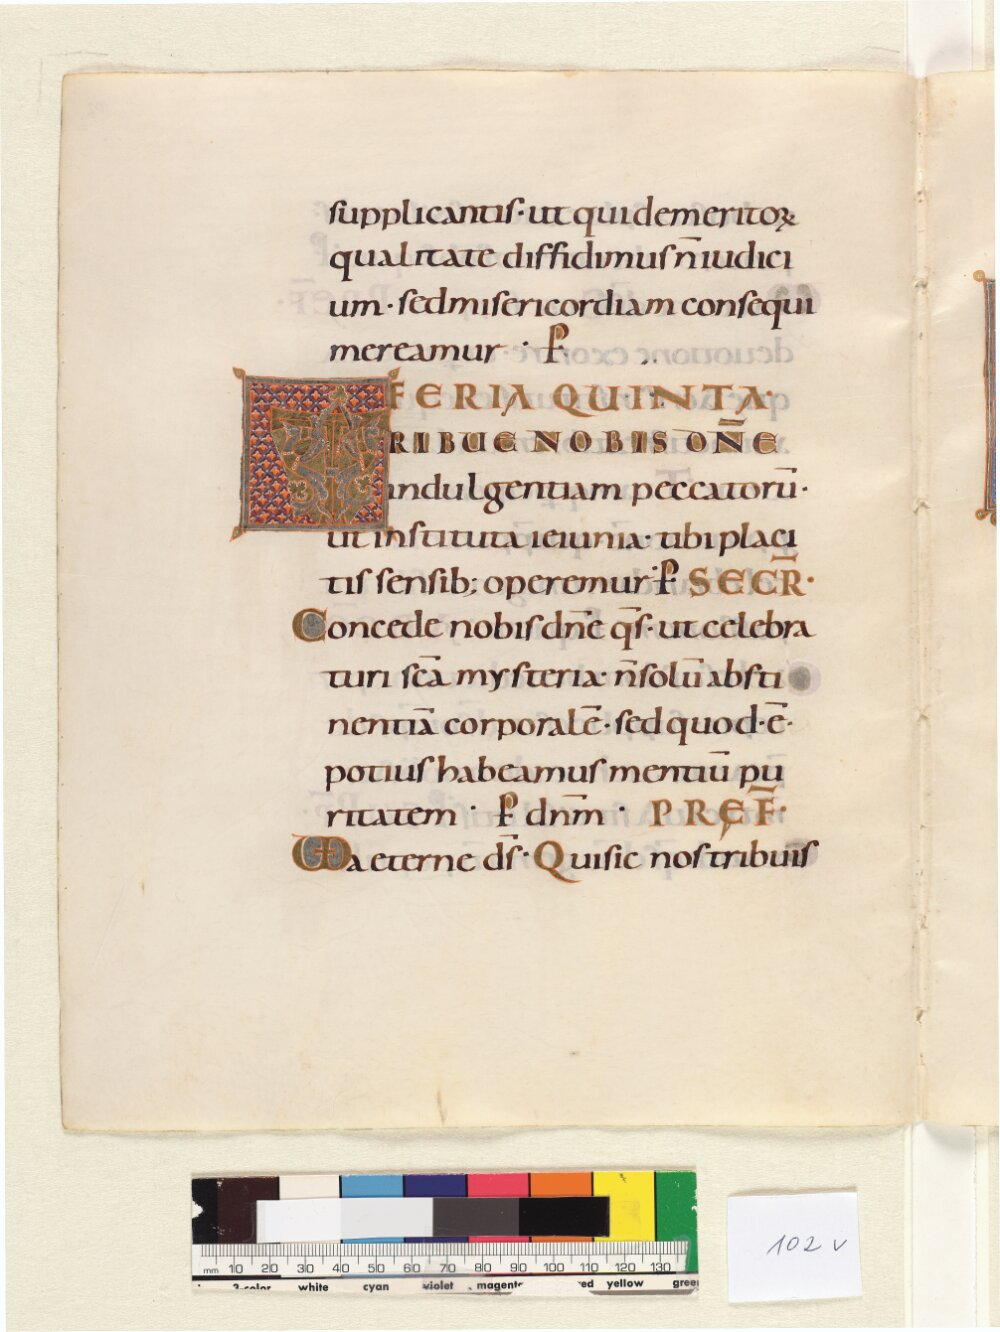 supplicantis· ut qui de meritoꝝ
qualitate diffidimus n̄ iudici
um· sed misericordiam consequi
mereamur · ꝑ·
FERIA QUINTA·
TRIBUE NOBIS OM̄NE
indulgentiam peccatorū·
ut instituta ieiunia· tibi placi
tis sensib; operemur· ꝑ SECR̄·
Concede nobis dn̄e q̄s· ut celebra
turi sc̄a mysteria· n̄ solū absti
nentiā corporalē· sed quod·ē·
potius habeamus mentiū pu
ritatem · ꝑ dnm̄ · PREF̄·
VD aeterne ds̄· Qui sic nos tribuis
mm 10 20 30 40 50 60 70 80 90 100 110 120 130
3-color white cyan violet magenta red yellow green
102 v